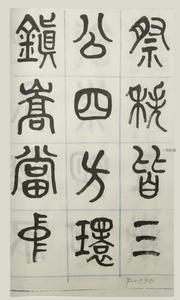 祭秩皆三
公四方環
鎮嵩當中